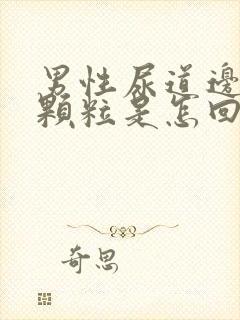 男性尿道邊
顆粒是怎回
奇思